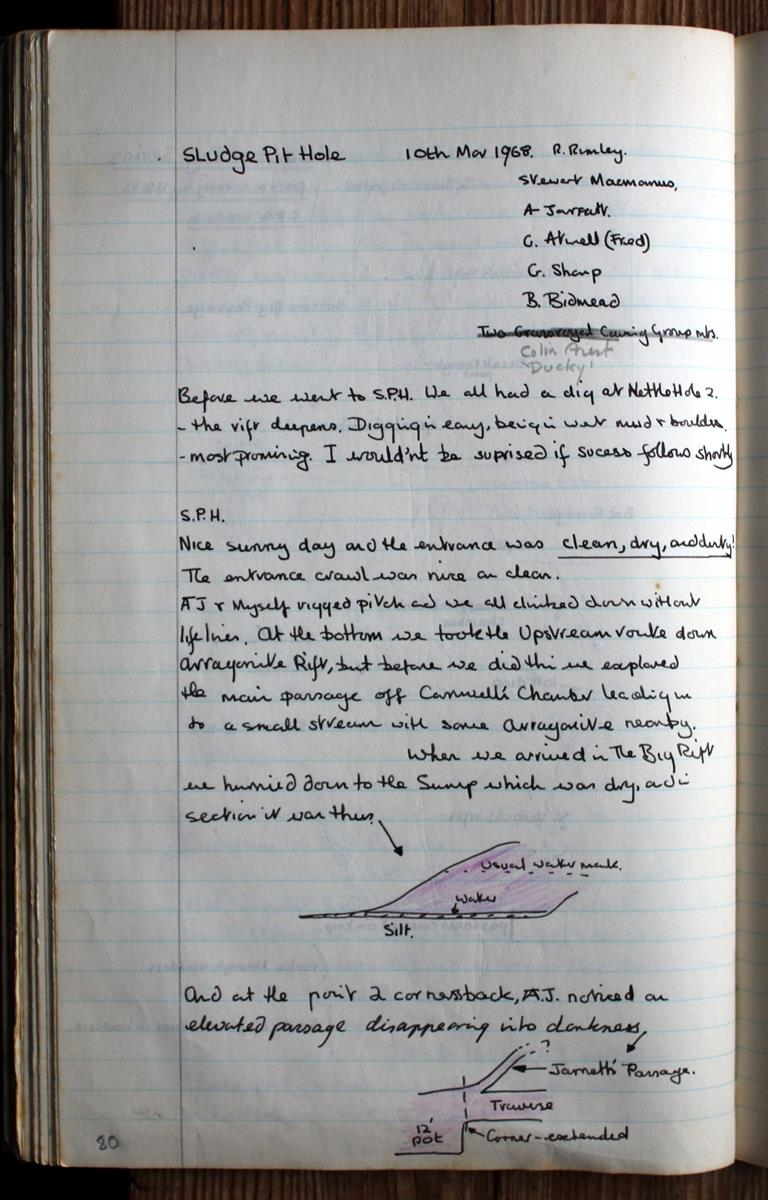 Sludge Pit Hole 10th Mar 1968. R. Rimley.
Stewart Macmanus,
A Jarratt.
C. Atwell (Fred)
G. Sharp
B. Bidmead
Two Graveyard Caving Group mbs.
Colin
Ducky'
Before we went to S.P.H. We all had a dig at Nettle Hole 2.
- the rift deepens. Digging is easy, being in wet mud + boulders.
- most promising. I would'nt be suprised if sucess follows shortly
S.P.H.
Nice sunny day and the entrance was clean, dry, and dusty!
The entrance crawl was nice an clean.
AJ & Myself rigged pitch and we all climbed down without
lifelines. At the bottom we took the Upstream route down
Arragonite Rift, but before we did this we explored
the main passage off Chamber leading in
to a small stream with some Arragonite nearby.
When we arrived in The Big Rift
we hurried down to the Sump which was dry, and in
section it was thus,
Usual water mark.
Water
Silt.
And at the point 2 corners back, A.J. noticed an
elevated passage disappearing into darkness,
?
Jarratt's Passage.
Traverse
12'
pot
Corner-extended
80